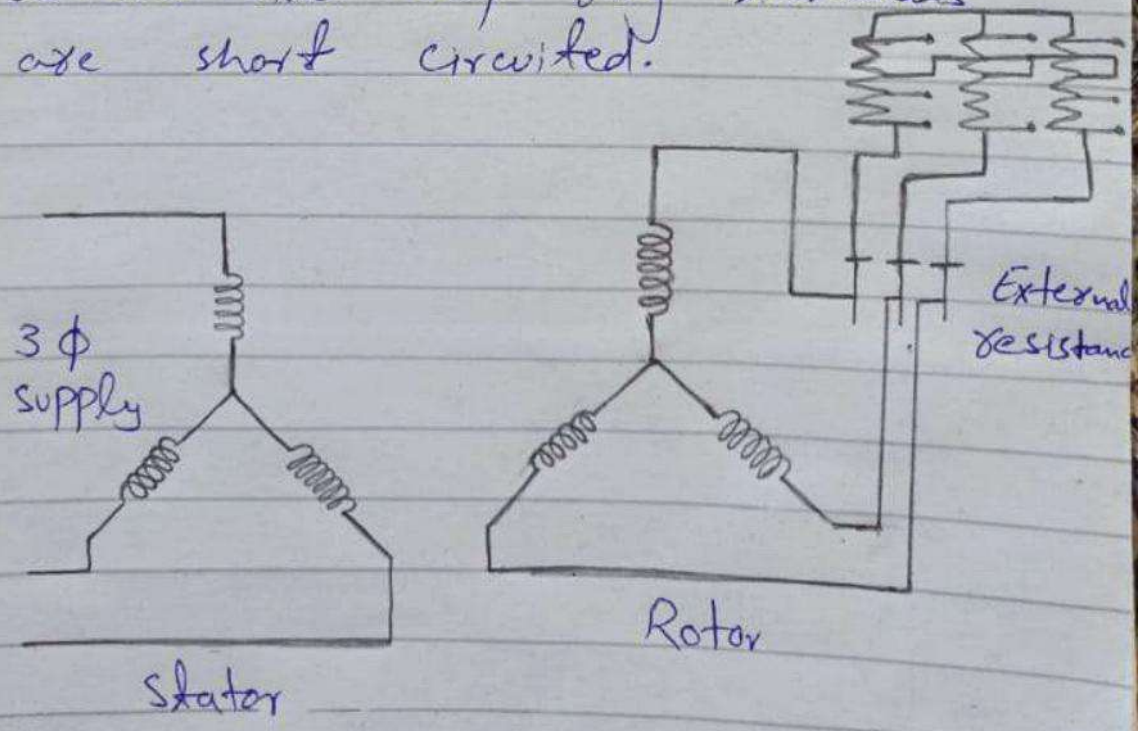 are short circuited.
3 ϕ
supply
External
resistanc
Rotor
Stator